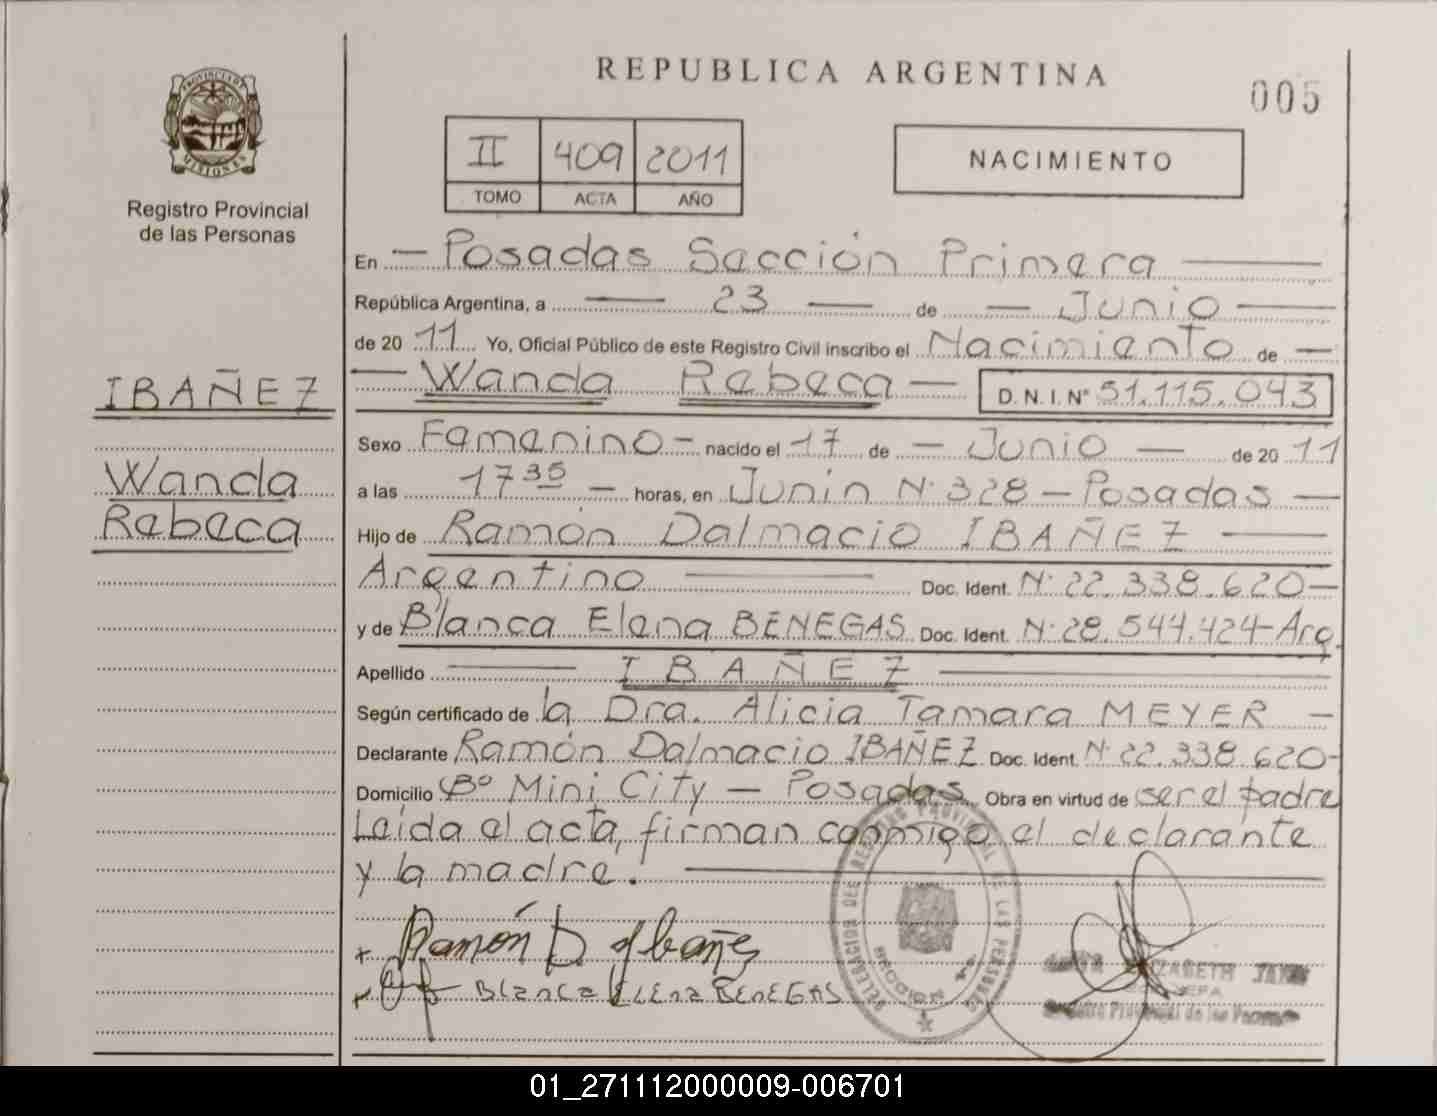 REPUBLICA ARGENTINA
005
PROVINCIA DE
MISIONES
Registro Provincial
de las Personas
II 409 2011
TOMO ACTA AÑO
NACIMIENTO
En Posadas Sección Primera
República Argentina, a 23 de Junio
de 20 11 Yo, Oficial Público de este Registro Civil inscribo el Nacimiento de
Wanda Rebeca D.N.I. N° 51.115.043
IBAÑEZ
Wanda
Rebeca
Sexo Femenino - nacido el 17 de Junio de 20 11
a las 17 35 horas, en Junin N° 328 - Posadas
Hijo de Ramón Dalmacio IBAÑEZ
Argentino Doc. Ident. N° 22.338.620-
y de Blanca Elena BENEGAS Doc. Ident. N° 28.544.424-Arg.
Apellido IBAÑEZ
Según certificado de la Dra. Alicia Tamara MEYER -
Declarante Ramón Dalmacio IBAÑEZ Doc. Ident. N° 22.338.620-
Domicilio B° Mini City - Posadas Obra en virtud de ser el padre
Leída el acta, firman conmigo el declarante
y la madre.
Ramón D. Ibañez
Blanca Elena BENEGAS
DELEGACION DEL REGISTRO PROVINCIAL DE LAS PERSONAS
SECCION 1a
ELIZABETH
JEFA
Registro Provincial de las Personas
01_271112000009-006701